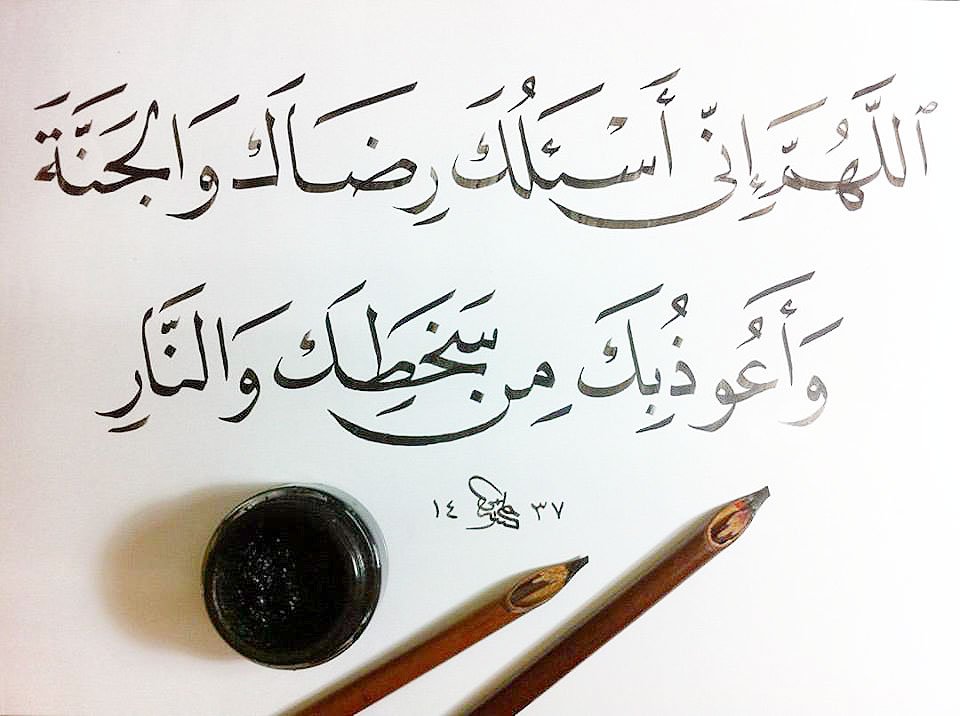 ٱللَّهُمَّ إِنِّي أَسْئَلُكَ رِضَاكَ وَالْجَنَّةَ
وَأَعُوذُ بِكَ مِن سَخَطِكَ وَالنَّارِ
١٤ ٣٧